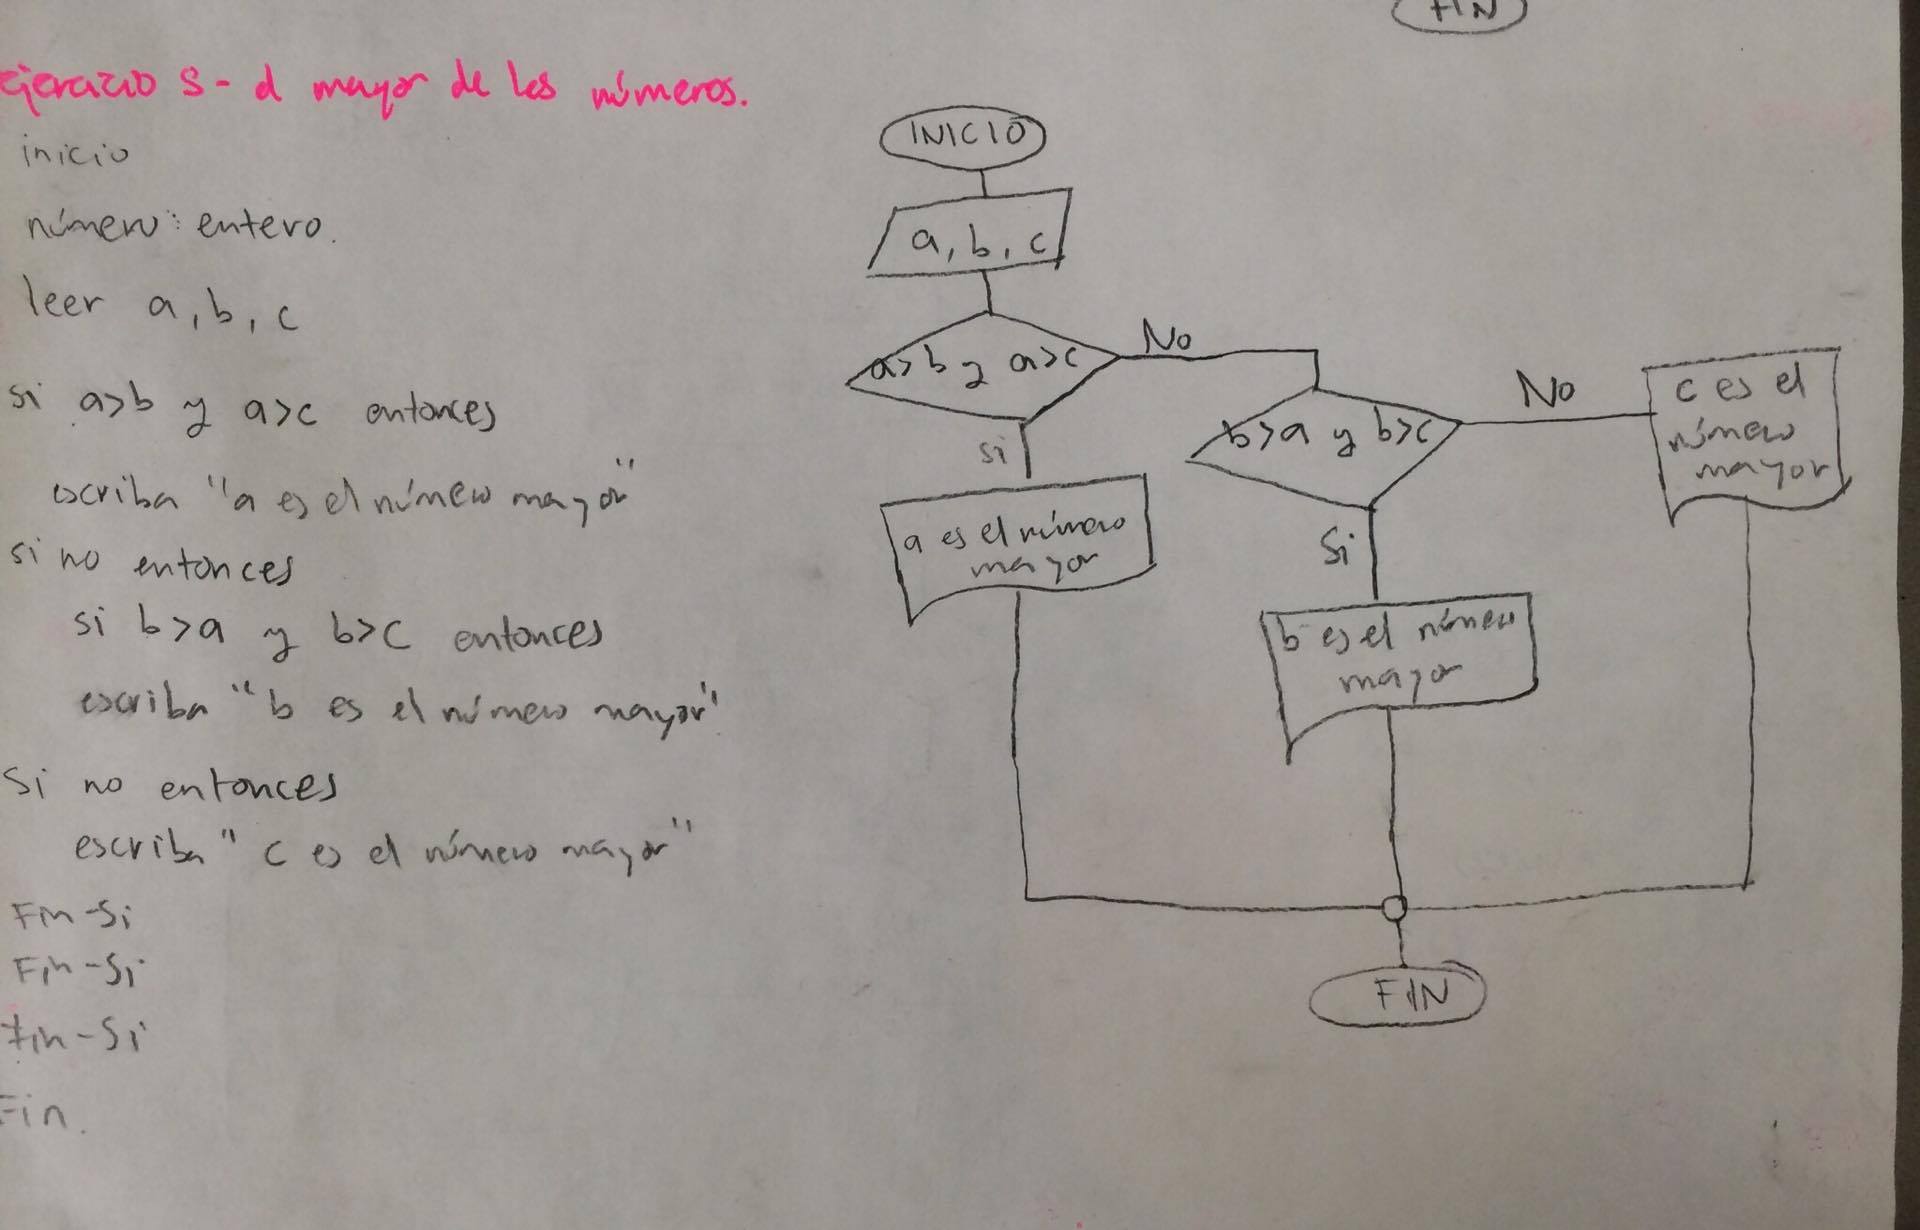 FIN
ejercicio 5 - el mayor de los números.
inicio
número: entero.
leer a, b, c
si a>b y a>c entonces
escriba "a es el número mayor"
si no entonces
si b>a y b>c entonces
escriba "b es el número mayor"
Si no entonces
escriba "c es el número mayor"
Fin-Si
Fin-Si
Fin-Si
Fin.
INICIO
a, b, c
a>b y a>c
No
si
a es el número
mayor
b>a y b>c
No
Si
b es el número
mayor
c es el
número
mayor
FIN